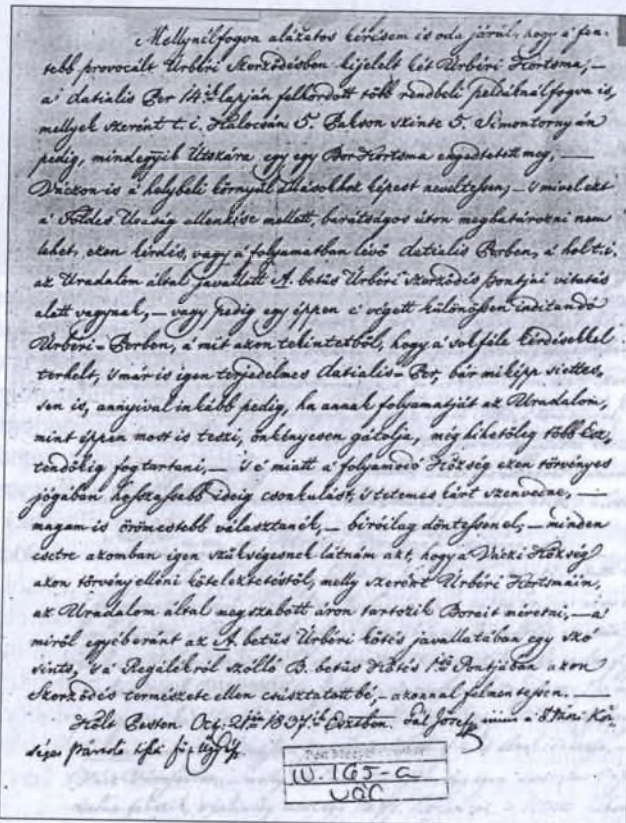 Mellynélfogva alázatos kérésem is oda járúl, hogy a' fen-
tebb provocált Úrbéri Szerződésben kijelelt két Úrbéri Kortsma, –
a' datialis Per 14ik lapján felhordott több rendbeli példáknálfogva is,
mellyek szerént t. i. Kalocsán 5. Pakson szinte 5. Simontornyán
pedig, mindegyik Utszára egy egy Bor Kortsma engedtetett meg, —
Váczon is a' helybeli környűlállásokhoz képest neveltessen, – 's mivel ezt
a' Földes Uraság ellenkése mellett, barátságos úton meghatározni nem
lehet, ezen kérdés, vagy a' folyamatban lévő datialis Perben, a' hol t. i.
az Uradalom által javallott A. betűs Úrbéri szerződés pontjai vitatás
alatt vagynak, – vagy pedig egy éppen e' végett különössen inditandó
Úrbéri-Perben, a' mit azon tekintetből, hogy a' sokféle kérdésekkel
terhelt, 's már is igen terjedelmes datialis-Per, bár miképp siettes-
sen is, annyival inkább pedig, ha annak folyamatját az Uradalom,
mint éppen most is teszi, önkényesen gátolja, még hihetőleg több Esz-
tendőkig fog tartani, — 's e' miatt a' folyamodó Község ezen törvényes
jógában hosszassebb ideig csonkulást, 's tetemes kárt szenvedne, —
magam is örömestebb választanék, – biróilag döntessen el; – minden
esetre azomban igen szükségesnek látnám azt, hogy a' Váczi Község
azon törvény elleni köteleztetéstől, melly szerént Úrbéri Kortsmáin,
az Uradalom által megszabott áron tartozik Borait méretni, — a'
miről egyéberánt az A. betűs Úrbéri kötés javallatában egy szó
sints, 's a' Regálékról szólló B. betűs Kötés 1ső Pontjában azon
Szerződés természete ellen csúsztatott bé, – azonnal felmentessen. —
Költ Pesten Oct. 21én 1837ik Eszben. Pál József
IV. 165-a
VÁC